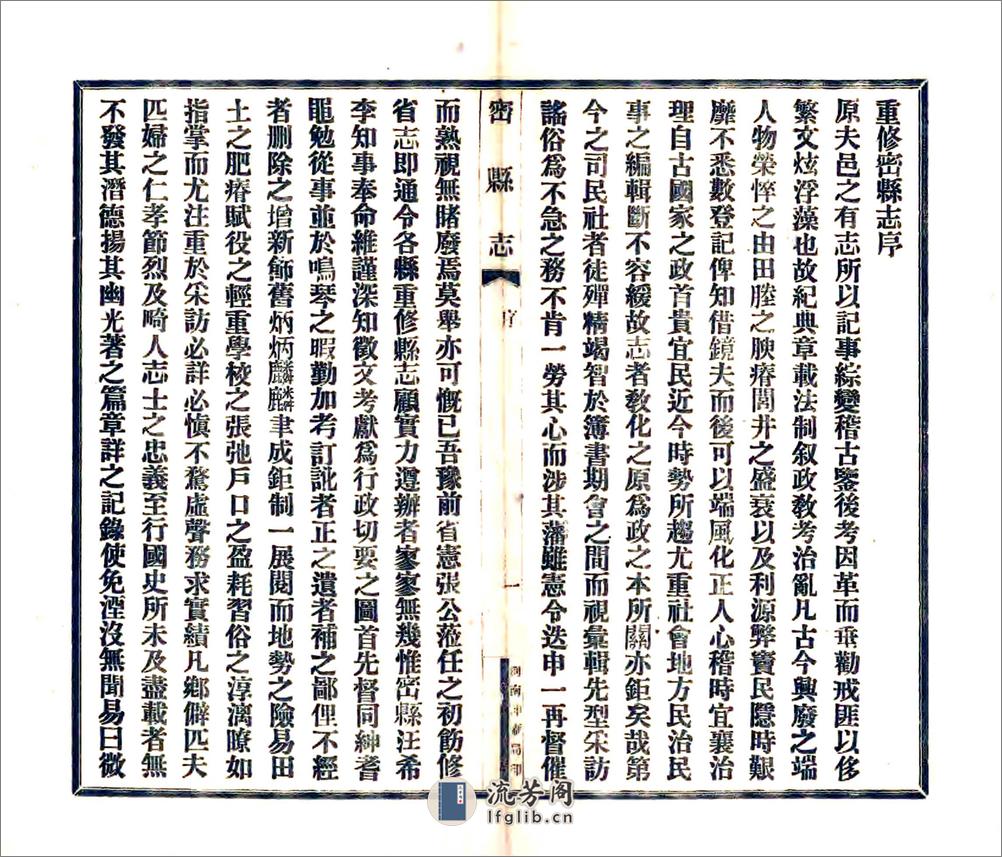 重修密縣志序
原夫邑之有志所以記事綜變稽古鑒後考因革而垂勸戒匪以侈
繁文炫浮藻也故紀典章載法制叙政教考治亂凡古今興廢之端
人物榮悴之由田塍之腴瘠閭井之盛衰以及利源弊竇民隱時艱
靡不悉數登記俾知借鏡夫而後可以端風化正人心稽時宜襄治
理自古國家之政首貴宜民近今時勢所趨尤重社會地方民治民
事之編輯斷不容緩故志者教化之原為政之本所關亦鉅矣哉第
今之司民社者徒殫精竭智於簿書期會之間而視彙輯先型采訪
謠俗為不急之務不肯一勞其心而涉其藩雖憲令迭申一再督催
密縣志
序
一
而熟視無睹廢焉莫舉亦可慨已吾豫前省憲張公涖任之初筋修
省志即通令各縣重修縣志顧實力遵辦者寥寥無幾惟密縣汪希
李知事奉命維謹深知徵文考獻為行政切要之圖首先督同紳耆
黽勉從事並於鳴琴之暇勤加考訂訛者正之遺者補之鄙俚不經
者刪除之增新飾舊炳炳麟麟聿成鉅制一展閱而地勢之險易田
土之肥瘠賦役之輕重學校之張弛戶口之盈耗習俗之淳漓瞭如
指掌而尤注重於采訪必詳必慎不騖虛聲務求實績凡鄉僻匹夫
匹婦之仁孝節烈及畸人志士之忠義至行國史所未及盡載者無
不發其潛德揚其幽光著之篇章詳之記錄使免湮沒無聞易曰微
流芳阁
lfglib.cn